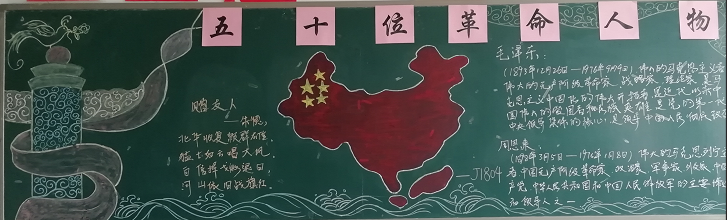 五十位革命人物
赠友人
——朱德
北华收复赖群雄
猛士如云唱大风
自信挥戈能退日
河山依旧战旗红
J1804
毛泽东:
(1893年12月26日—1976年9月9日) 伟大的马克思主义者
伟大的无产阶级革命家、战略家、理论家,是
马克思主义中国化的伟大开拓者,是近代以来中
国伟大的爱国者和民族英雄,是党的第一代
中央领导集体的核心,是领导中国人民
周恩来
(1898年3月5日—1976年1月8日) 伟大的马克思列宁主义
者,中国无产阶级革命家、政治家、军事家、外交家,中国共
产党、中华人民共和国和中国人民解放军的主要
和领导人之一